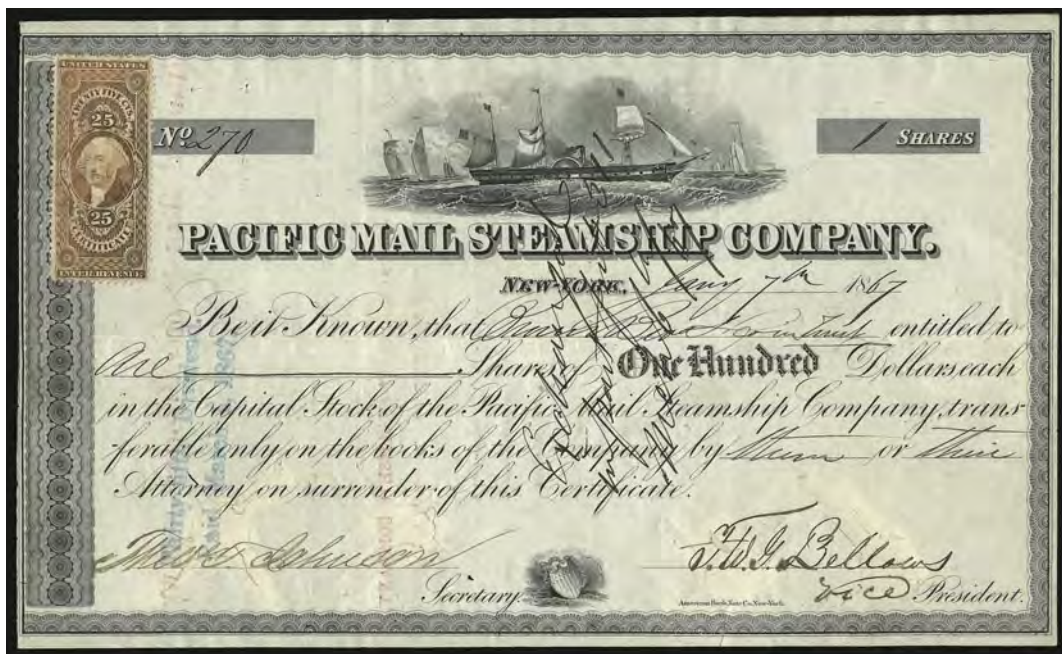 UNITED STATES
TWENTY FIVE CTS.
25
25
CERTIFICATE
INTER. REVENUE
No 270
1 SHARES
PACIFIC MAIL STEAMSHIP COMPANY.
NEW-YORK, Jany 7th 1867
Be it Known, that entitled to
One Shares of One Hundred Dollars each
in the Capital Stock of the Pacific Mail Steamship Company, trans-
ferable only on the books of the Company by them or their
Attorney on surrender of this Certificate.
Theo. T. Johnson
Secretary.
F.W.G. Bellows
American Bank Note Co. New-York.
Vice President.